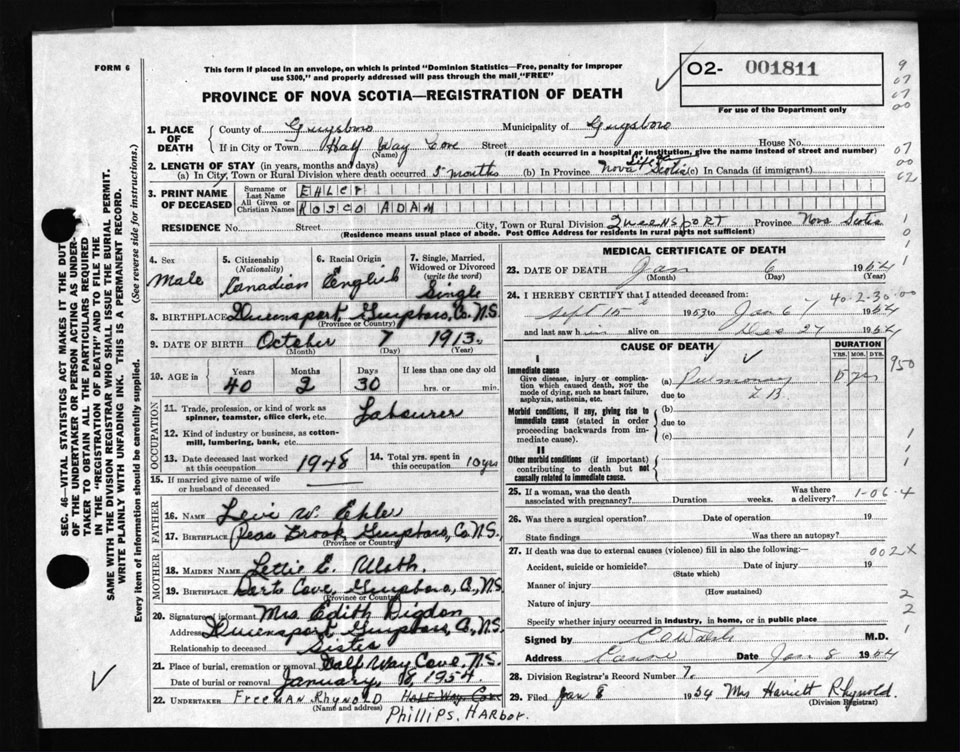 FORM 6
This form if placed in an envelope, on which is printed "Dominion Statistics—Free, penalty for improper
use $300," and properly addressed will pass through the mail "FREE"
O2- 001811
For use of the Department only
PROVINCE OF NOVA SCOTIA—REGISTRATION OF DEATH
1. PLACE OF DEATH { County of Guysboro Municipality of Guysboro
If in City or Town Half Way Cove Street House No.
(Name) (If death occurred in a hospital or institution, give the name instead of street and number)
2. LENGTH OF STAY (in years, months and days)
(a) In City, Town or Rural Division where death occurred 5 months (b) In Province Life Nova Scotia (c) In Canada (if immigrant)
3. PRINT NAME OF DECEASED { Surname or Last Name EHLER
All Given or Christian Names ROSCO ADAM
RESIDENCE No. Street City, Town or Rural Division QUEENSPORT Province Nova Scotia
(Residence means usual place of abode. Post Office Address for residents in rural parts not sufficient)
4. Sex Male
5. Citizenship (Nationality) Canadian
6. Racial Origin English
7. Single, Married, Widowed or Divorced (write the word) Single
8. BIRTHPLACE Queensport, Guysboro, Co. N.S.
(Province or Country)
9. DATE OF BIRTH October 7 1913.
(Month) (Day) (Year)
10. AGE in { Years 40 Months 2 Days 30 If less than one day old hrs. or min.
OCCUPATION
11. Trade, profession, or kind of work as spinner, teamster, office clerk, etc. Labourer
12. Kind of industry or business, as cotton-mill, lumbering, bank, etc.
13. Date deceased last worked at this occupation 1948
14. Total yrs. spent in this occupation 10 yrs
15. If married give name of wife or husband of deceased
FATHER
16. NAME Levi W. Ehler
17. BIRTHPLACE Peas Brook, Guysboro, Co. N.S.
(Province or Country)
MOTHER
18. MAIDEN NAME Lettie E.
19. BIRTHPLACE Cove, Guysboro, Co., N.S.
(Province or Country)
20. Signature of informant Mrs Edith Digdon
Address Queensport Guysboro, Co, N.S.
Relationship to deceased sister
21. Place of burial, cremation or removal Half Way Cove. N.S.
Date of burial or removal January, 8, 1954.
22. UNDERTAKER FREEMAN RHYNOLD HALF WAY COVE
(Name and address)
PHILLIPS, HARbor.
MEDICAL CERTIFICATE OF DEATH
23. DATE OF DEATH Jan 6 1954
(Month) (Day) (Year)
24. I HEREBY CERTIFY that I attended deceased from: 40-2-30-00
Sept 15 1953 to Jan 6 1954
and last saw him alive on Dec 27 1954
CAUSE OF DEATH DURATION
YRS. MOS. DYS.
I
Immediate cause
Give disease, injury or complication which caused death, NOT the mode of dying, such as heart failure, asphyxia, asthenia, etc.
(a) Pulmonary
due to T.B.
Morbid conditions, if any, giving rise to immediate cause (stated in order proceeding backwards from immediate cause).
(b)
due to
(c)
II
Other morbid conditions (if important) contributing to death but not causally related to immediate cause.
25. If a woman, was the death associated with pregnancy? Duration weeks. Was there a delivery? 1-06-4
26. Was there a surgical operation? Date of operation 19
State findings Was there an autopsy?
27. If death was due to external causes (violence) fill in also the following:— 002X
Accident, suicide or homicide? Date of injury 19
(State which)
Manner of injury
(How sustained)
Nature of injury
Specify whether injury occurred in industry, in home, or in public place
Signed by M.D.
Address Canso Date Jan 8 1954
28. Division Registrar's Record Number 7.
29. Filed Jan 8 1954 Mrs Harriett Rhynold.
(Division Registrar)
SEC. 46—VITAL STATISTICS ACT MAKES IT THE DUTY
OF THE UNDERTAKER OR PERSON ACTING AS UNDER-
TAKER TO OBTAIN ALL THE PARTICULARS REQUIRED
IN THE "REGISTRATION OF DEATH" AND TO FILE THE
SAME WITH THE DIVISION REGISTRAR WHO SHALL ISSUE THE BURIAL PERMIT.
WRITE PLAINLY WITH UNFADING INK. THIS IS A PERMANENT RECORD.
Every item of information should be carefully supplied. (See reverse side for instructions.)